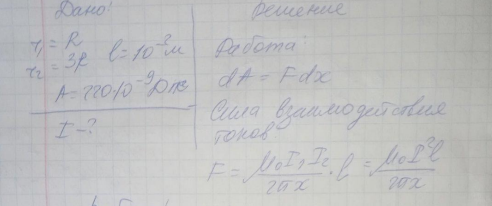 Дано:
r₁ = R
r₂ = 3R l = 10⁻² м
A = 220·10⁻⁹ Дж
I - ?
Решение
Работа
dA = Fdx
Сила взаимодействия
токов
F = μ₀I₁I₂/2πx · l = μ₀I²l/2πx